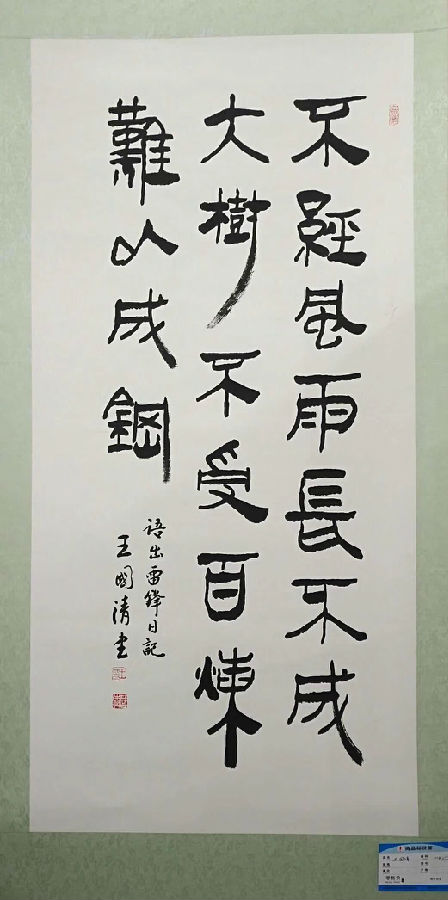 不經風雨長不成
大樹不受百煉
難以成鋼
語出雷鋒日記
王國清書
商品标价签